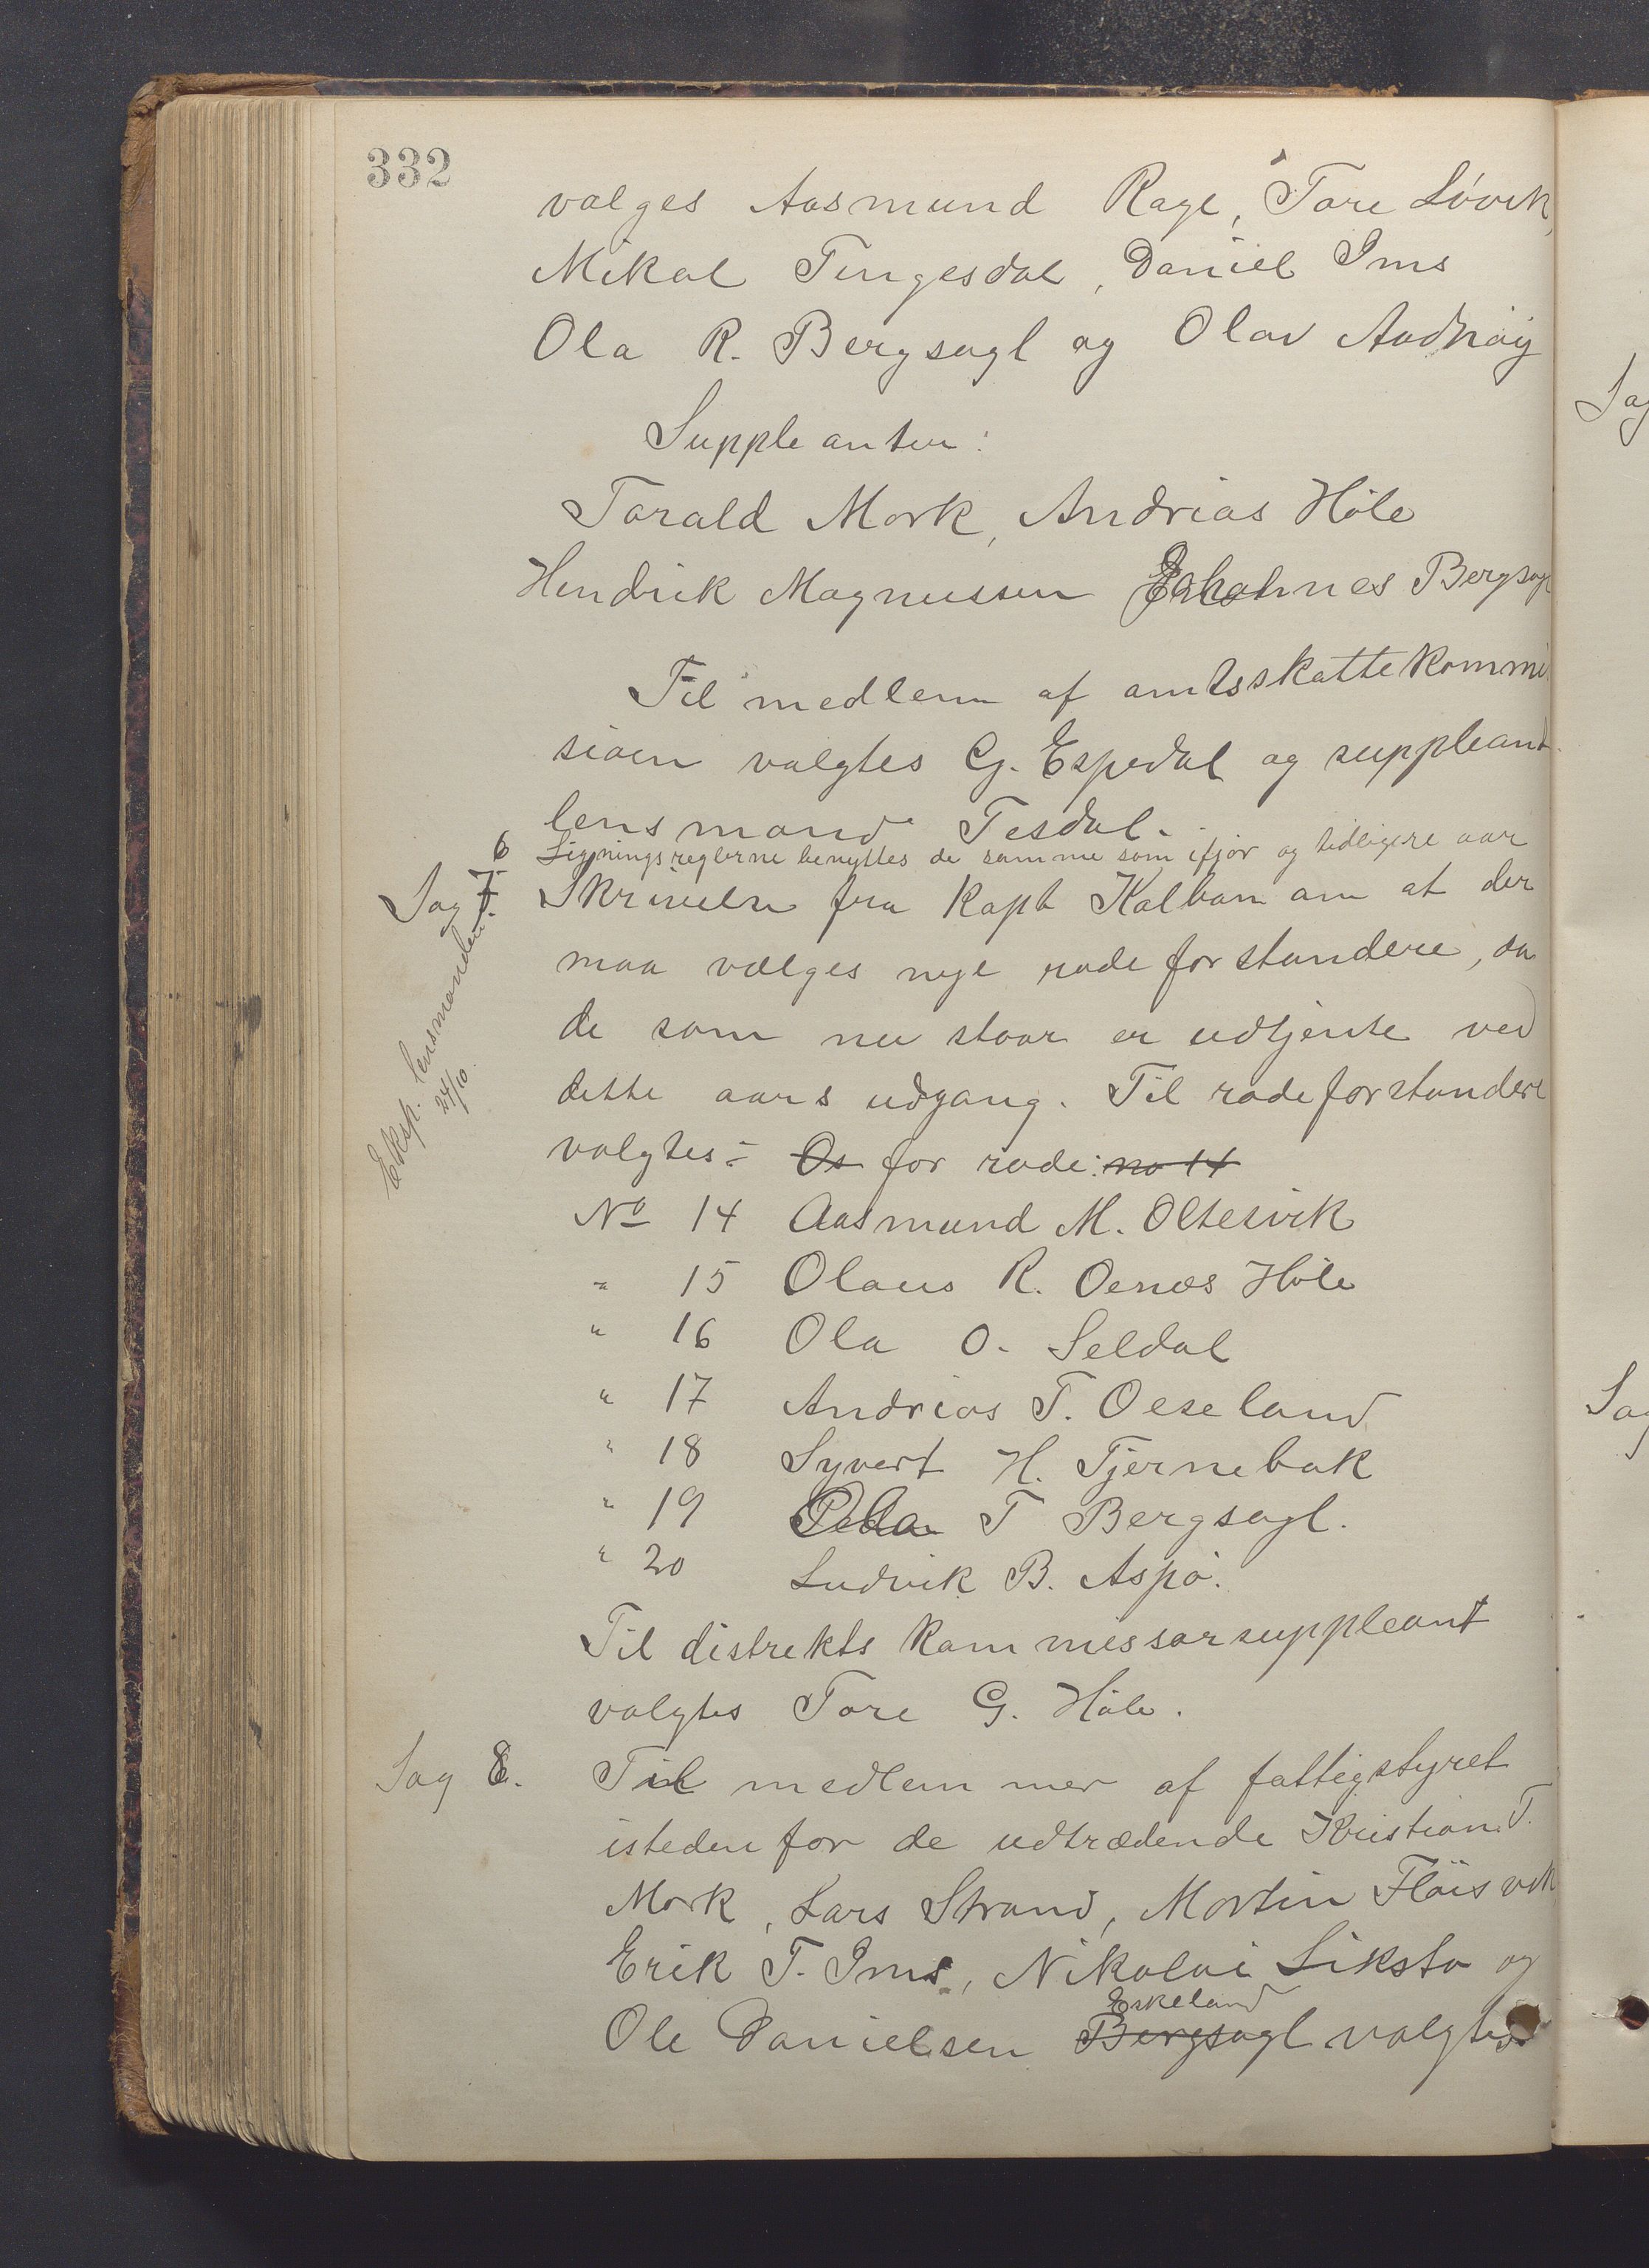 332
valges Aasmund Rage, Tore Løvik,
Mikal Tingesdal, Daniel Ims
Ola R. Bergsagl og Olav Aadnøy
Suppleanter:
Torald Mork, Andrias Höle
Hendrik Magnussen Johannes Bergsagl
Til medlem af amtsskattekommi
sioen valgtes G. Espedal og suppleant
lensmand Tesdal.
6 Ligningsreglerne benyttes de samme som ifjor og tidligere aar
Sag 7. Skrivelse fra Kapt Kalban om at der
maa vælges nye rodeforstandere, da
de som nu staar er udtjente ved
dette aars udgang. Til rodeforstandere
valgtes:- Os for rode: no 14
Eksp. lensmanden
24/10.
No 14 Aasmund M. Oltesvik
" 15 Olaus R. Oenæs Höle
" 16 Ola O. Seldal
" 17 Andrias T. Oeseland
" 18 Syvert H. Tjernebak
" 19 T Bergsagl.
" 20 Ludvik B. Aspø.
Til distrekts kommissærsuppleant
valgtes Tore G. Høle.
Sag 8. Til medlemmer af fattigstyret
istedenfor de udtrædende Kristian T.
Mork, Lars Strand, Mortin Fløisvik
Erik T. Ims, Nikolai Liksta og
Eskeland
Ole Danielsen Bergsagl valgtes
Sag
Sag